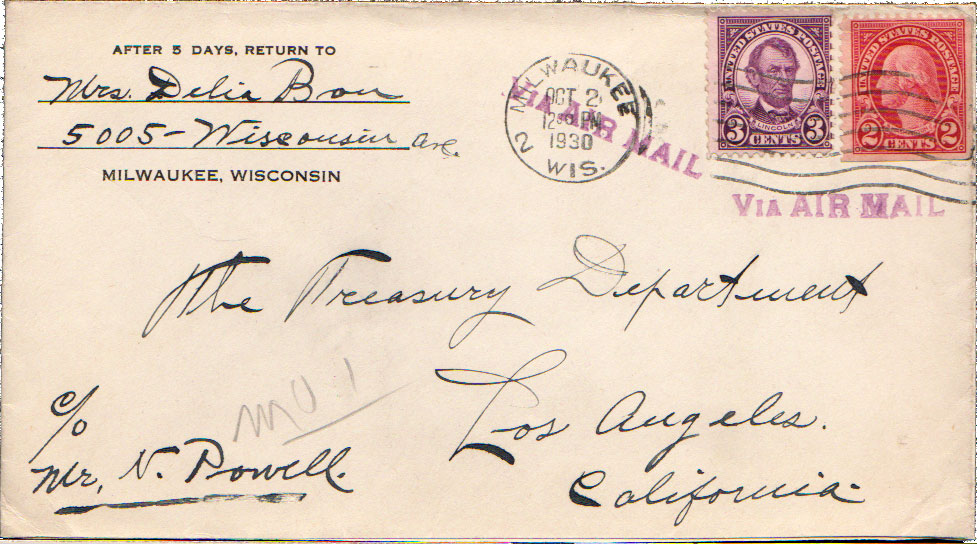 AFTER 5 DAYS, RETURN TO
Mrs. Delia Bon
5005 - Wisconsin Ave.
MILWAUKEE, WISCONSIN
MILWAUKEE
OCT 2
12 PM
1930
2 WIS.
VIA AIR MAIL
UNITED STATES POSTAGE
LINCOLN
3 CENTS 3
UNITED STATES POSTAGE
2 CENTS 2
VIA AIR MAIL
The Treasury Department
Los Angeles.
California.
c/o
Mr. N. Powell.